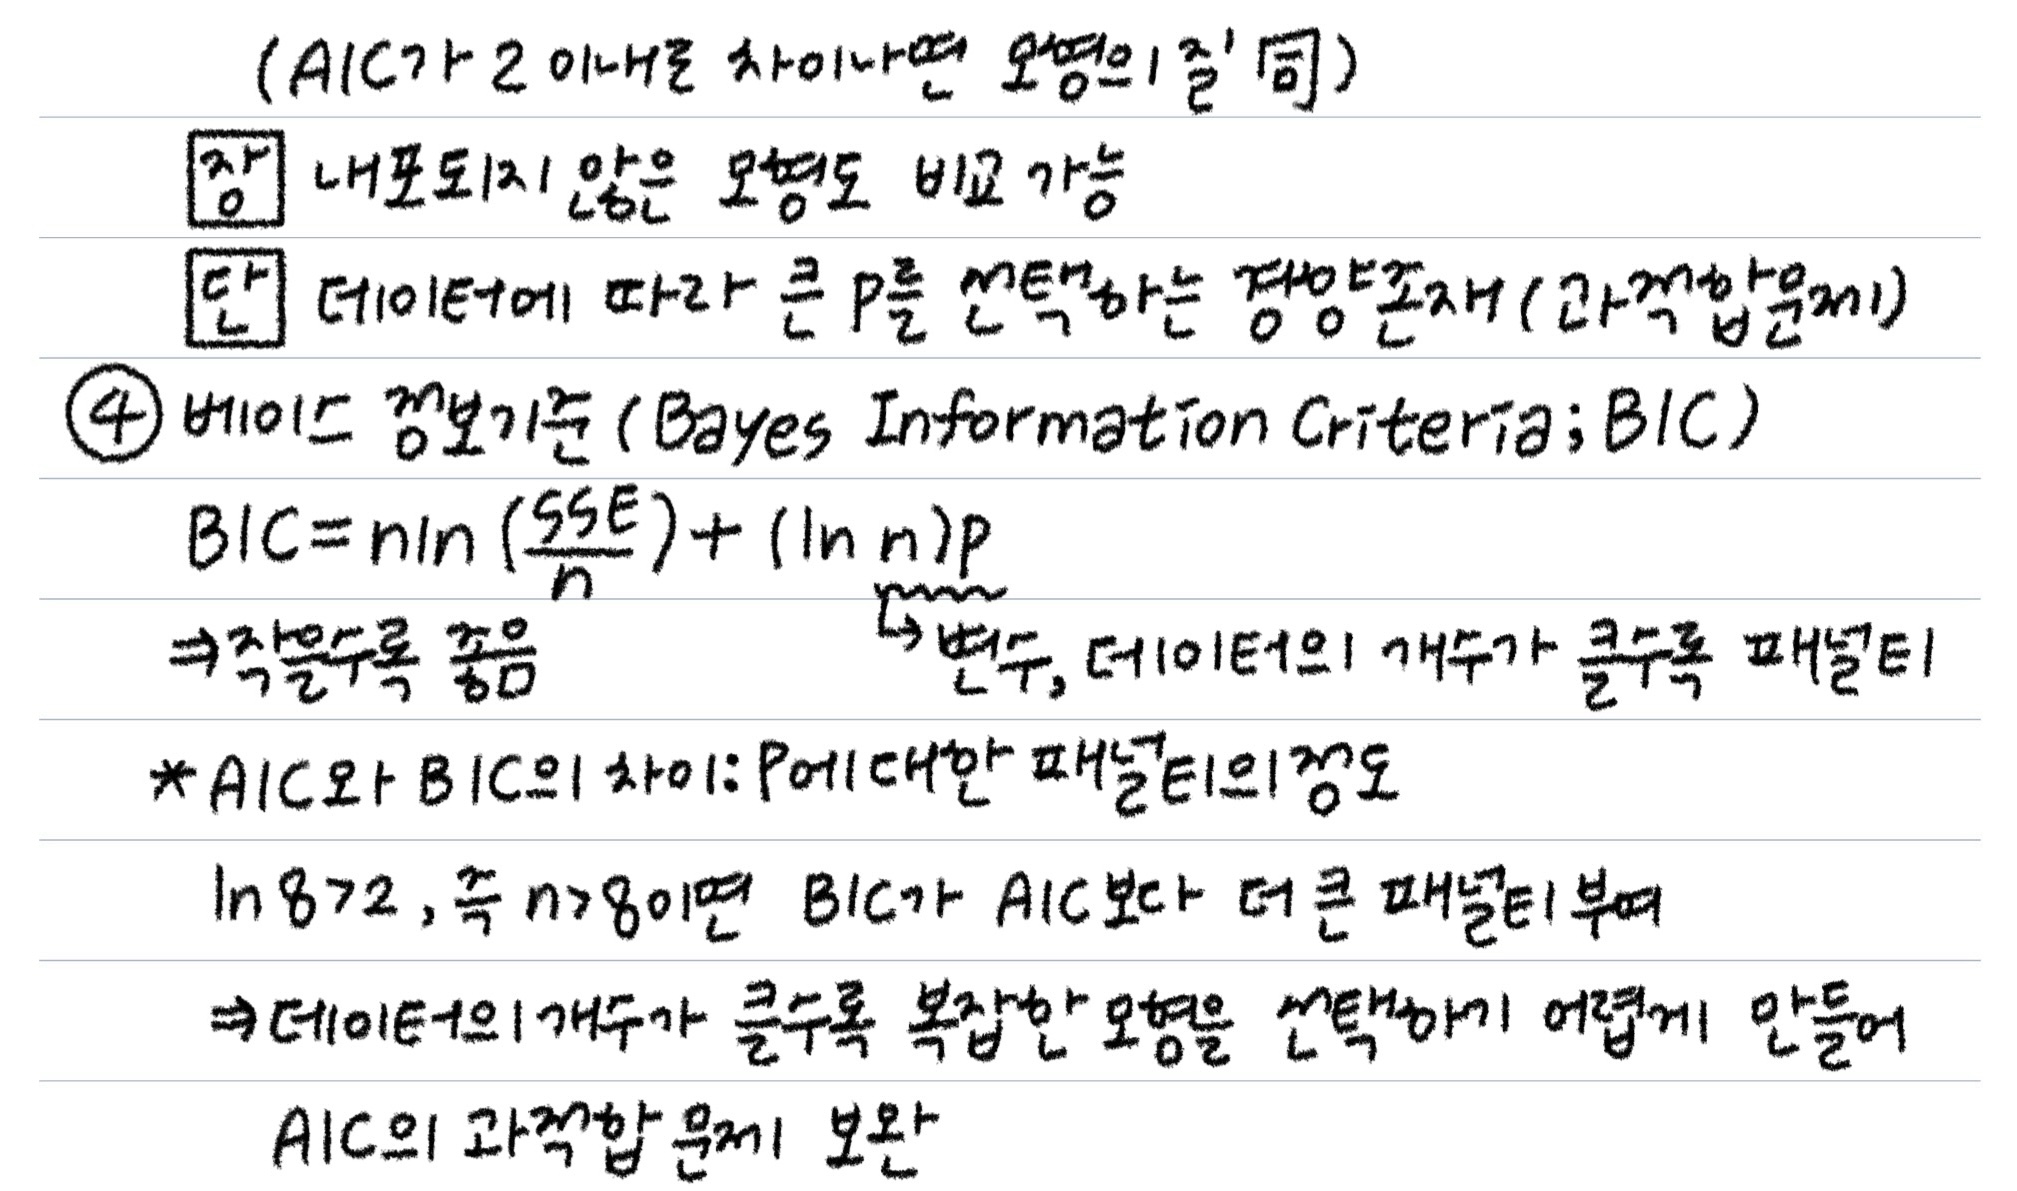 (AIC가 2 이내로 차이나면 모형의 질 同)
장 내포되지 않은 모형도 비교 가능
단 데이터에 따라 큰 P를 선택하는 경향존재(과적합문제)
④ 베이즈 정보기준(Bayes Information Criteria; BIC)
BIC = nln(SSE/n) + (ln n)p
⇒작을수록 좋음 ↳변수, 데이터의 개수가 클수록 패널티
*AIC와 BIC의 차이: P에 대한 패널티의 정도
ln 8>2, 즉 n>8이면 BIC가 AIC보다 더 큰 패널티 부여
⇒데이터의 개수가 클수록 복잡한 모형을 선택하기 어렵게 만들어
AIC의 과적합 문제 보완